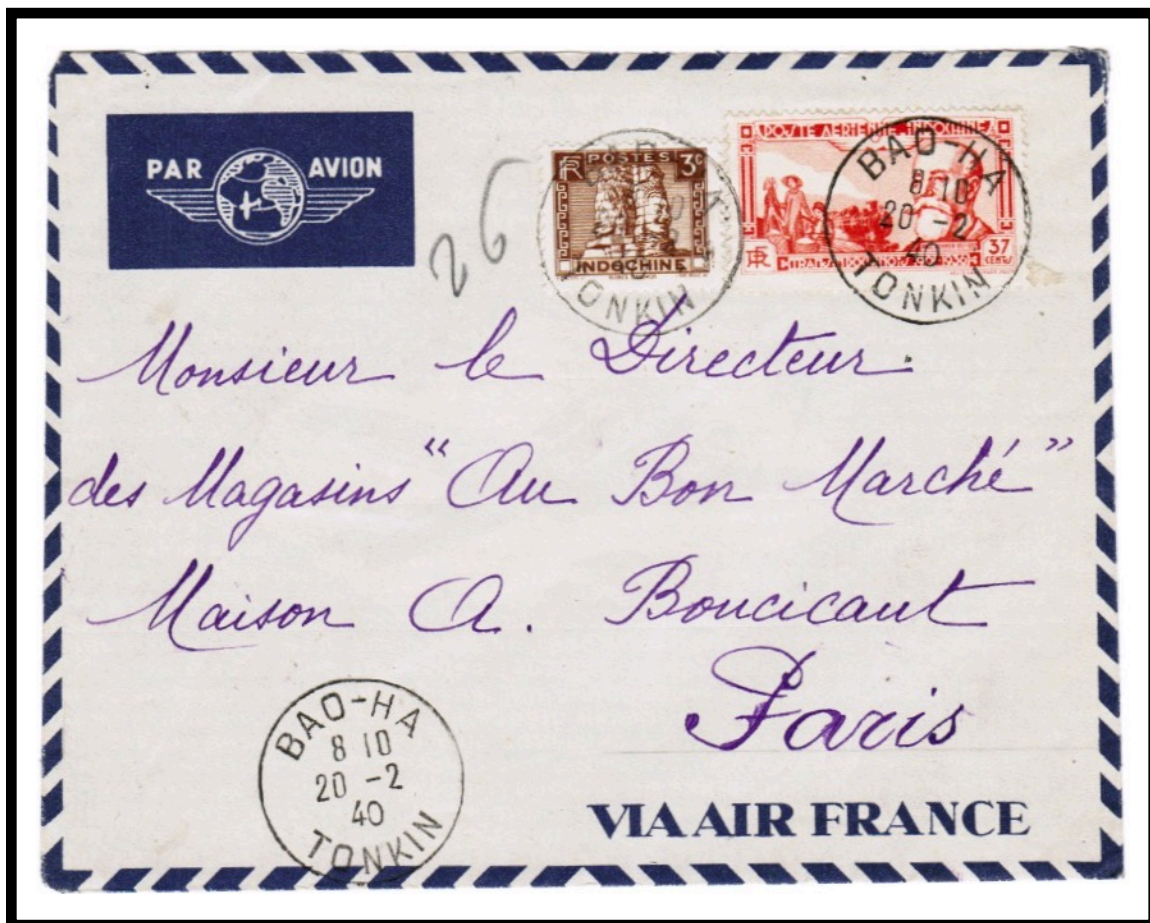 PAR AVION
26
RF POSTES 3c
INDOCHINE
POSTE AERIENNE INDOCHINE
RF 37 CENTS
BAO-HA
8 10
20 -2
40
TONKIN
TONKIN
Monsieur le Directeur
des Magasins "Au Bon Marché"
Maison A. Boucicaut
Paris
BAO-HA
8 10
20 -2
40
TONKIN
VIA AIR FRANCE